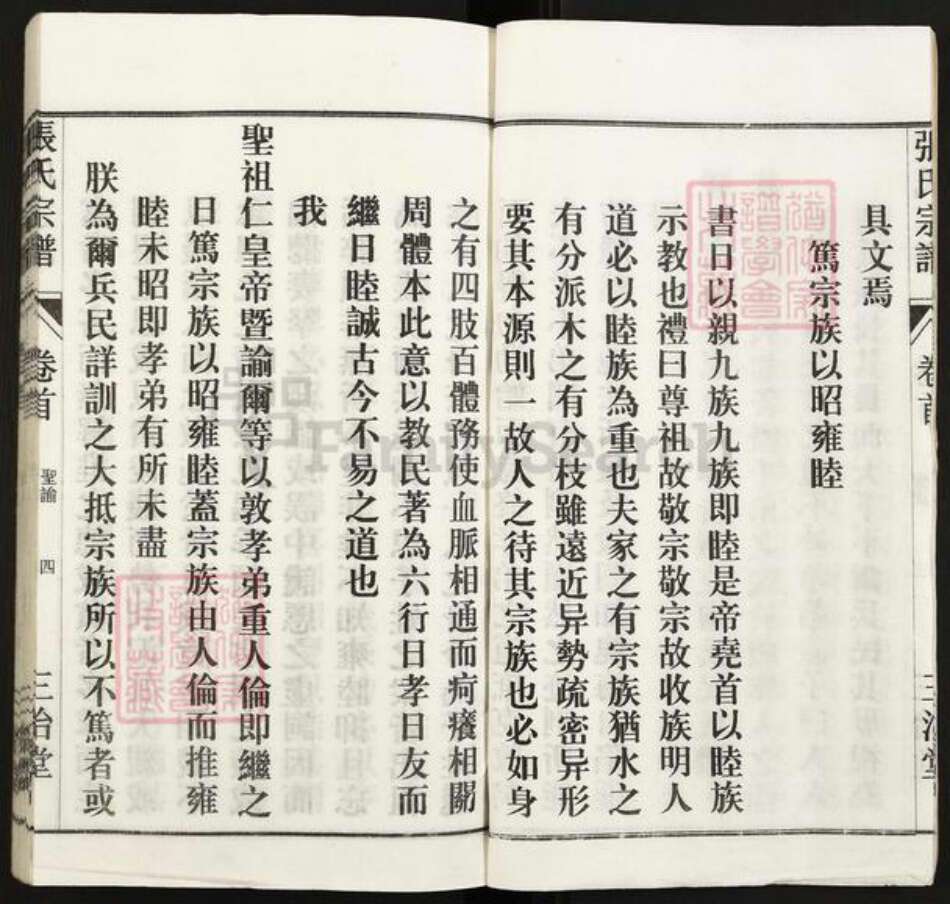 具文焉
篤宗族以昭雍睦
書曰以親九族九族即睦是帝堯首以睦族
示教也禮曰尊祖故敬宗敬宗故收族明人
道必以睦族為重也夫家之有宗族猶水之
有分派木之有分枝雖遠近异勢疏密异形
要其本源則一故人之待其宗族也必如身
之有四肢百體務使血脈相通而疴癢相關
周體本此意以教民著為六行曰孝曰友而
繼曰睦誠古今不易之道也
我
聖祖仁皇帝暨諭爾等以敦孝弟重人倫即繼之
曰篤宗族以昭雍睦蓋宗族由人倫而推雍
睦未昭即孝弟有所未盡
朕為爾兵民詳訓之大抵宗族所以不篤者或
張氏宗譜
卷首
聖諭
四
三治堂
張氏宗譜
卷首
三治堂
FamilySearch